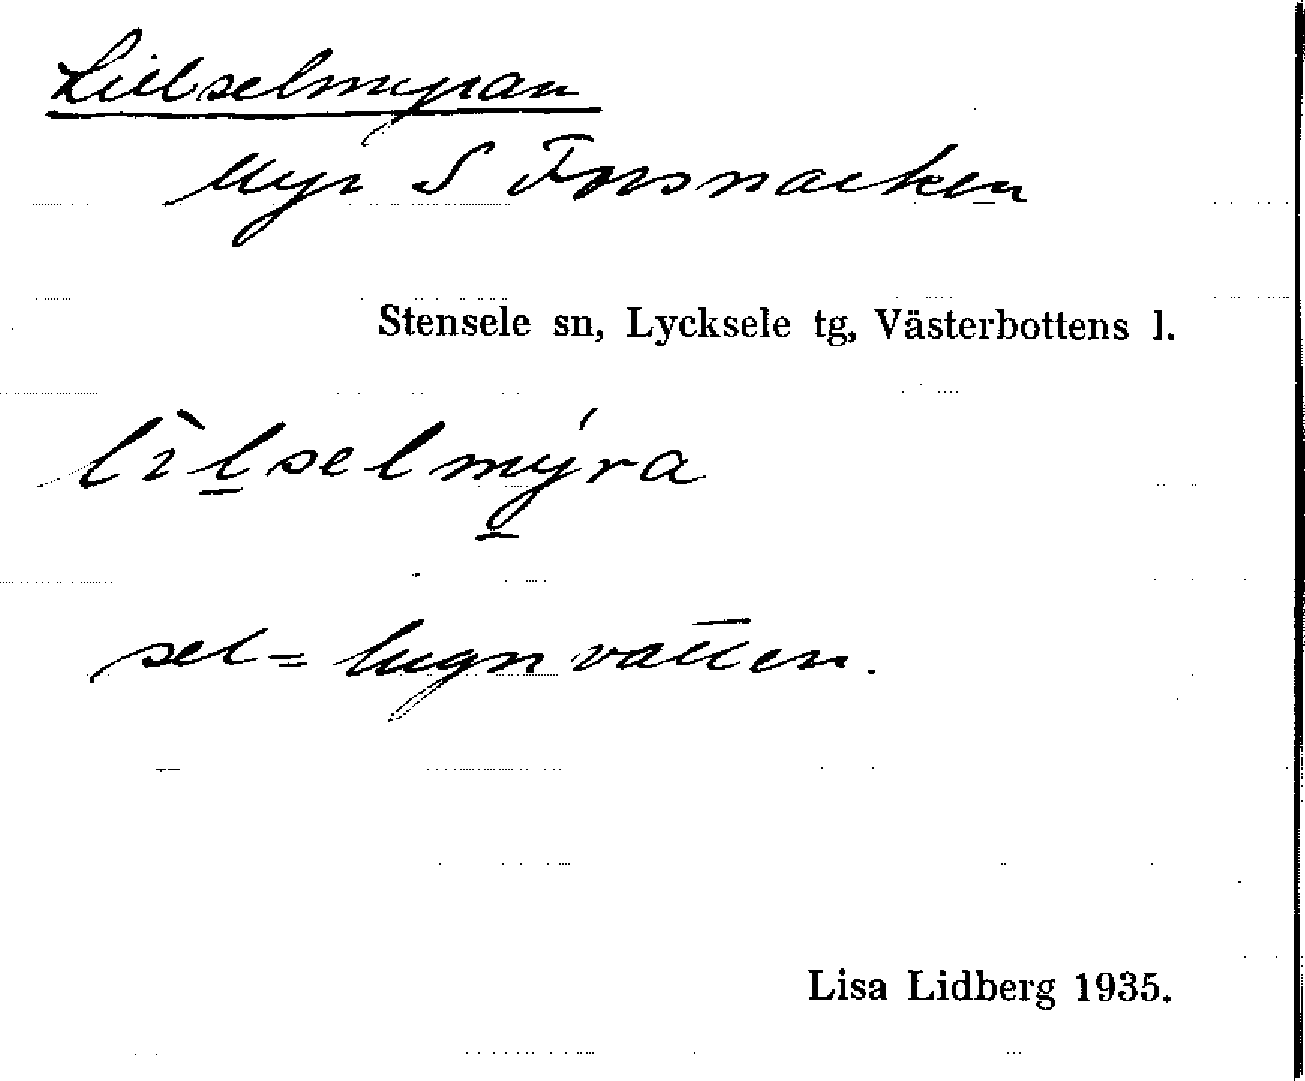 Lillselmyran
Myr S Forsnacken
Stensele sn, Lycksele tg, Västerbottens l.
lìl̲selmý̲ra
sel = lugnvatten.
Lisa Lidberg 1935.